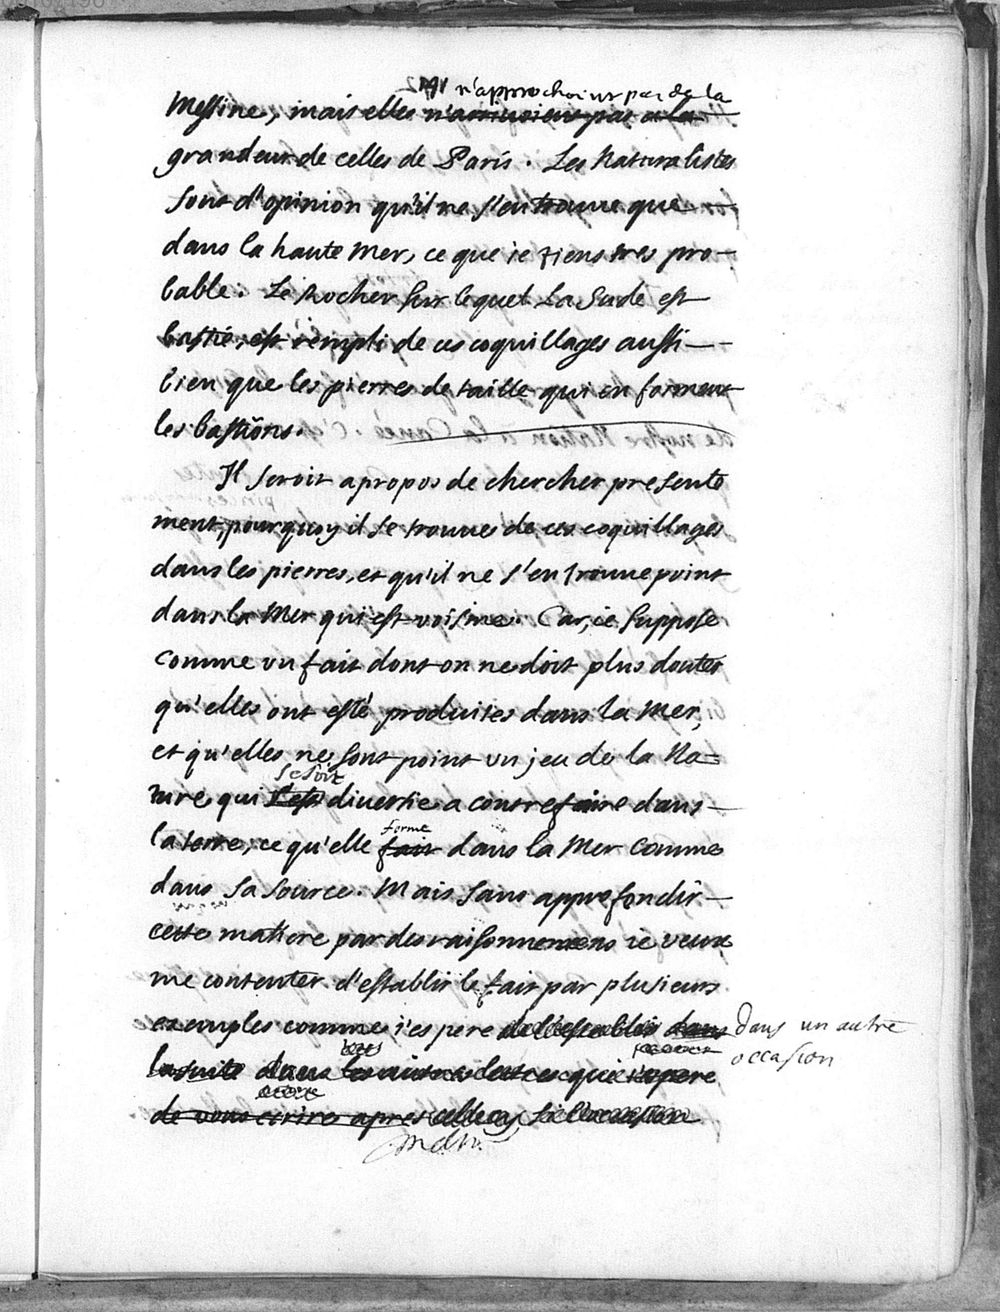 n'approchoient pas de la
Messine, mais elles n'arrivoient pas a la
grandeur de celles de Paris. Les Naturalistes
sont d'opinion qu'il ne s'en trouve que
dans la haute Mer, ce que ie tiens tres pro-
bable. Le Rocher sur lequel La Sude est
bastie, est rempli de ces coquillages aussi
bien que les pierres de taille qui en forment
les bastions.
Il seroit a propos de chercher presente
ment, pourquoy il se trouve de ces coquillages
dans les pierres, et qu'il ne s'en trouve point
dans la Mer qui est voisine. Car, ie suppose
comme un fait dont on ne doit plus douter
qu'elles ont esté produites dans la Mer,
et qu'elles ne sont point un jeu de la Na=
se soit
ture qui s'est divertie a contrefaire dans
forme
la terre, ce qu'elle fait dans la Mer comme
dans sa source. Mais sans approfondir
cette matiere par des raisonnemens ie veux
me contenter d'establir le fait par plusieurs
exemples comme i'espere de l'establir dans dans un autre
occasion
la suite dans les autres lettres que i'espere
de vous ecrire apres celle cy si l'occasion